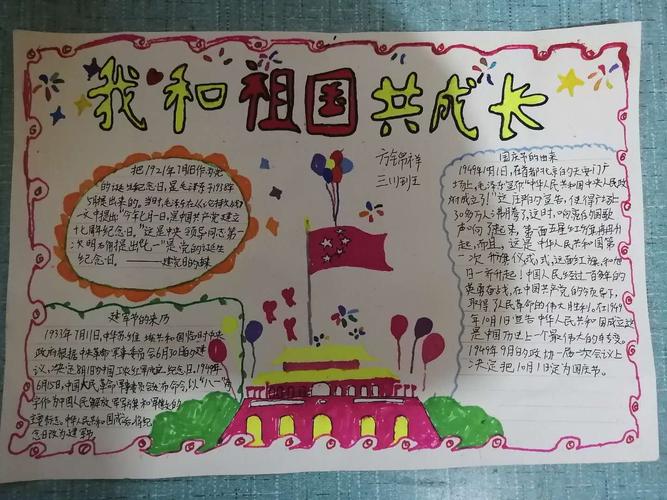 我和祖国共成长
方锦祥
三川班
把1921年7月1日作为党
的诞生纪念日,是毛泽东于1938年
5月提出来的。当时,毛泽东在《论持久战》
一文中提出"今年七月一日,是中国共产党建立
十七周年纪念日。"这是中央领导同志第一
次明确提出"七一"是党的诞生
纪念日。——建党日的由来
建军节的来历
1933年7月11日,中华苏维埃共和国临时中央
政府根据中央革命军事委员会6月30日的建
议,决定8月1日为中国工农红军成立纪念日。1949年
6月15日,中国人民革命军事委员会发布命令,以"八一"两
字作为中国人民解放军军旗和军徽的
主要标志。中华人民共和国成立后,将纪
念日改为建军节。
国庆节的由来
1949年10月1日,在首都北京的天安门广
场上,毛泽东宣布"中华人民共和国中央人民政
府成立了!"这庄严的宣告,使得广场
30多万人沸腾了,这时,响亮的国歌
声响了起来,第一面五星红旗冉冉升
起,而且,这是中华人民共和国第
一次升旗仪式,这面红旗,和旭
日一并升起!中国人民经过一百多年的
英勇奋战,在中国共产党的领导下,
取得了人民革命的伟大胜利。在1949
年10月1日宣告中华人民共和国成立,这
是中国历史上一个最伟大的转变。
1949年9月的政协一届一次会议上
决定把10月1日定为国庆节。